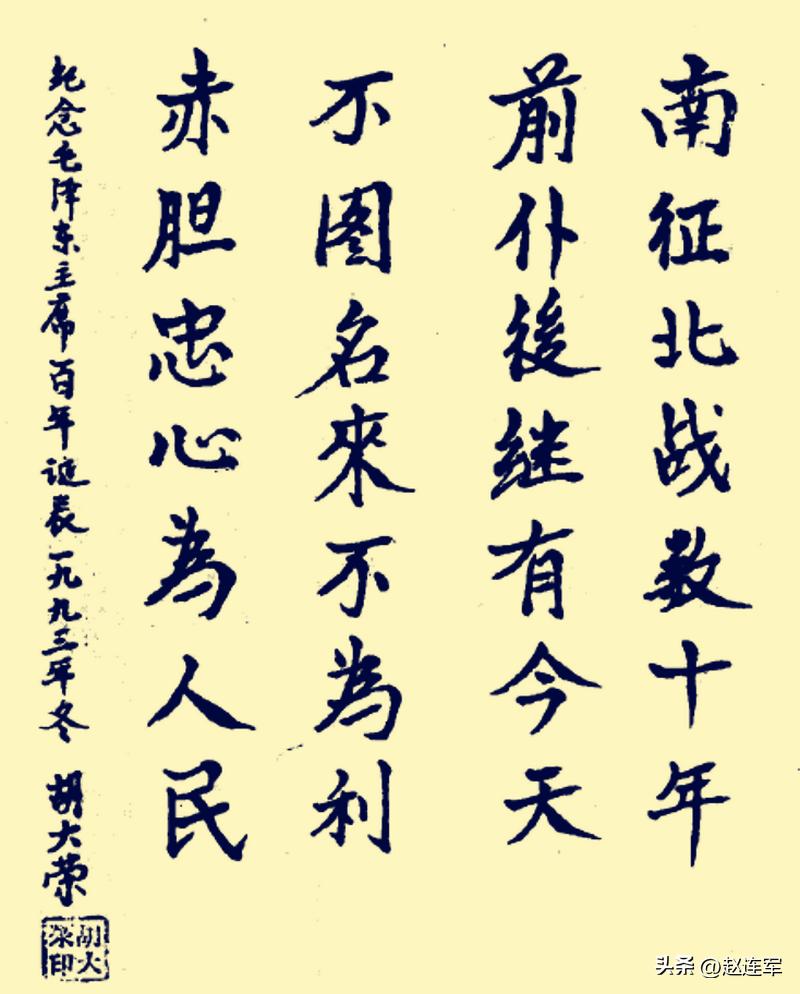 南征北战数十年
前仆後继有今天
不图名來不为利
赤胆忠心為人民
纪念毛泽东主席百年诞辰一九九三年冬
胡大荣
胡大
荣印
头条 @赵连军